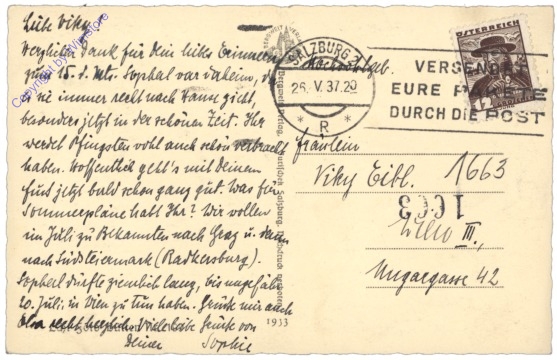 Liebe Viky!
Herzlichen Dank für Dein liebes Erinnern
zum 15. d. Mts. Sopherl war daheim, da
sie immer recht nach Hause zieht,
besonders jetzt in der schönen Zeit. Ihr
werdet Pfingsten wohl auch schön verbracht
haben. Hoffentlich geht's mit Deinem
Fuß jetzt bald schon ganz gut. Was für
Sommerpläne habt Ihr? Wir wollen
im Juli zu Bekannten nach Graz u. dann
nach Südsteiermark (Radkersburg).
Sopherl dürfte ziemlich lang, bis ungefähr
20. Juli, in Wien zu tun haben. Grüße mir auch
recht herzlich. Viele liebe Grüße von
Deiner Sophie
Copyright by Wienstore
SALZBURG 2
26. V. 37. 20
* R *
VERSENDET
EURE PAKETE
DURCH DIE POST
ÖSTERREICH
Fräulein
Viky Eibl.
1663
1663
Wien III,
Ungargasse 42
1933